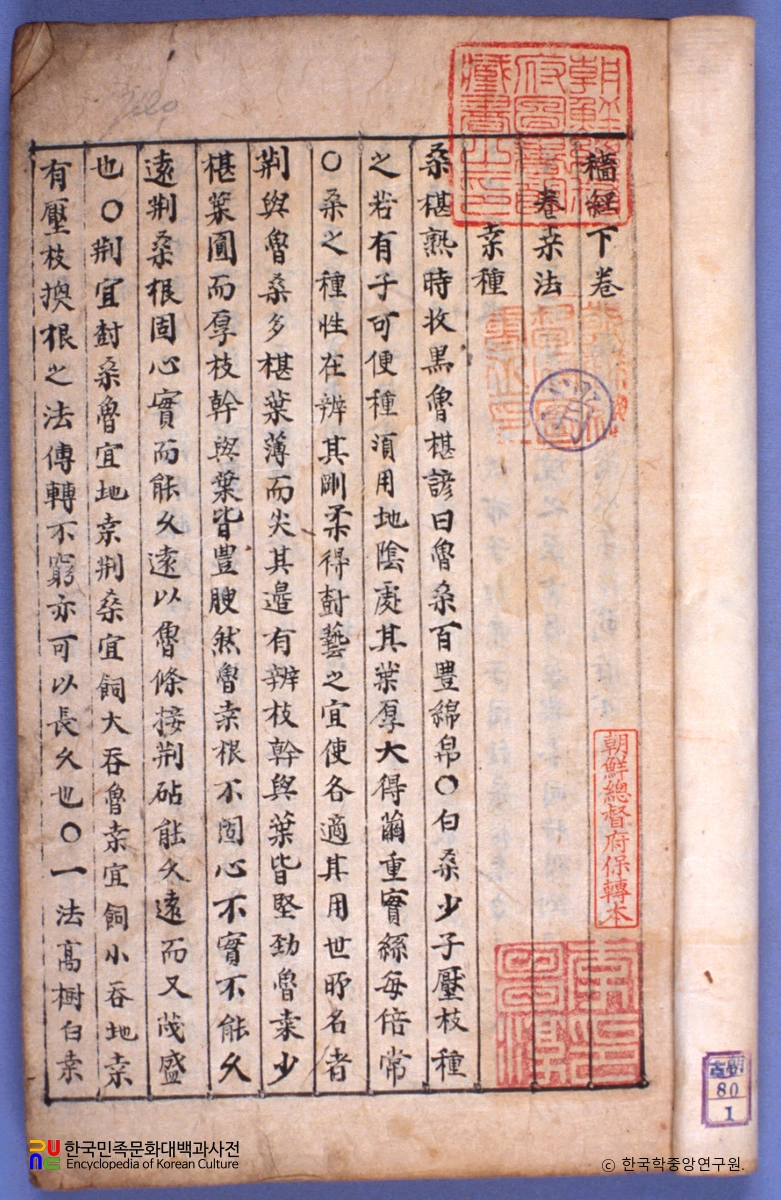 穡經下卷
養桒法
桒種
桑椹熟時收黒魯椹諺曰魯桑百豊綿帛〇白桑少子壓枝種
之若有子可便種湏用地陰處其葉厚大得繭重實絲每倍常
〇桑之種性在辨其剛柔得封藝之宜使各適其用世所名者
荆與魯桑多椹葉薄而尖其邉有辨枝幹與葉皆堅勁魯桒少
椹葉圓而厚枝幹與葉皆豊腴然魯桒根不固心不實不能久
遠荆桑根固心實而能久遠以魯條接荆砧能久遠而又茂盛
也〇荆宜封桑魯宜地桒荆桑宜飼大吞魯桒宜飼小吞地桒
有壓枝換根之法傳轉不窮亦可以長久也〇一法高樹白桒
朝鮮總督府保轉本
80
1
한국민족문화대백과사전
Encyclopedia of Korean Culture
ⓒ 한국학중앙연구원.